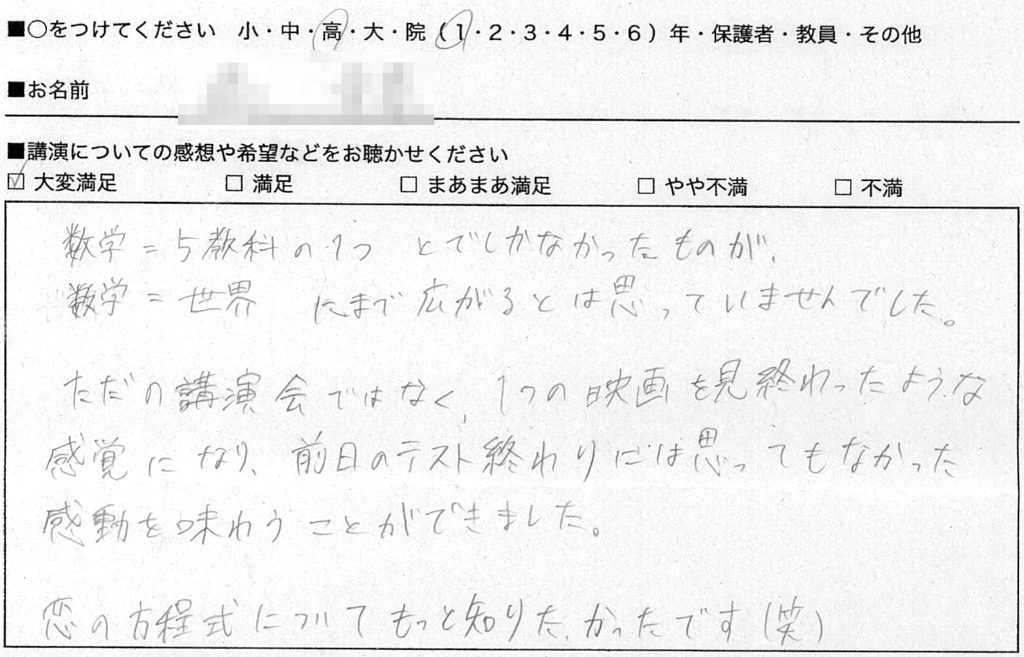 ■○をつけてください 小・中・高・大・院（1・2・3・4・5・6）年・保護者・教員・その他
■お名前
■講演についての感想や希望などをお聴かせください
☑ 大変満足 □ 満足 □ まあまあ満足 □ やや不満 □ 不満
数学＝5教科の1つ とでしかなかったものが、
数学＝世界 にまで広がるとは思っていませんでした。
ただの講演会ではなく、1つの映画を見終わったような
感覚になり、前日のテスト終わりには思ってもなかった
感動を味わうことができました。
恋の方程式についてもっと知りたかったです（笑）